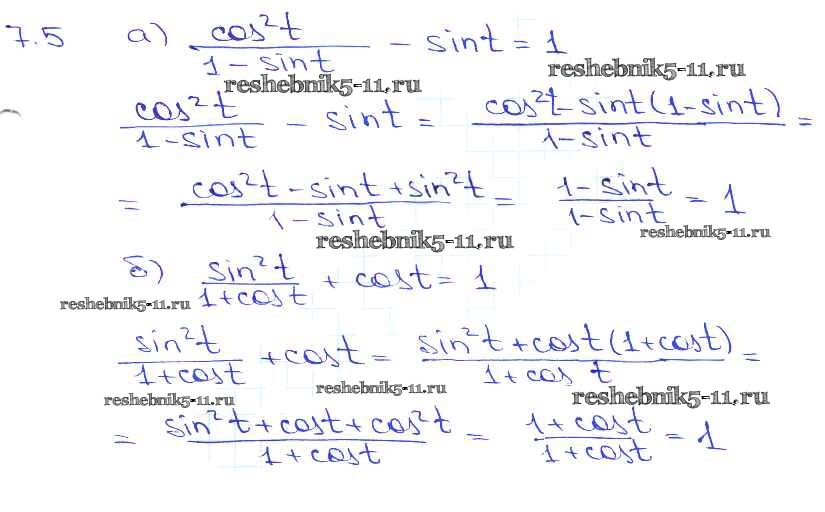 7.5 а) cos²t / (1 - sint) - sint = 1
reshebnik5-11.ru reshebnik5-11.ru
cos²t / (1 - sint) - sint = (cos²t - sint(1 - sint)) / (1 - sint) =
= (cos²t - sint + sin²t) / (1 - sint) = (1 - sint) / (1 - sint) = 1
reshebnik5-11.ru reshebnik5-11.ru
б) sin²t / (1 + cost) + cost = 1
reshebnik5-11.ru
sin²t / (1 + cost) + cost = (sin²t + cost(1 + cost)) / (1 + cos t) =
reshebnik5-11.ru reshebnik5-11.ru reshebnik5-11.ru
= (sin²t + cost + cos²t) / (1 + cost) = (1 + cost) / (1 + cost) = 1